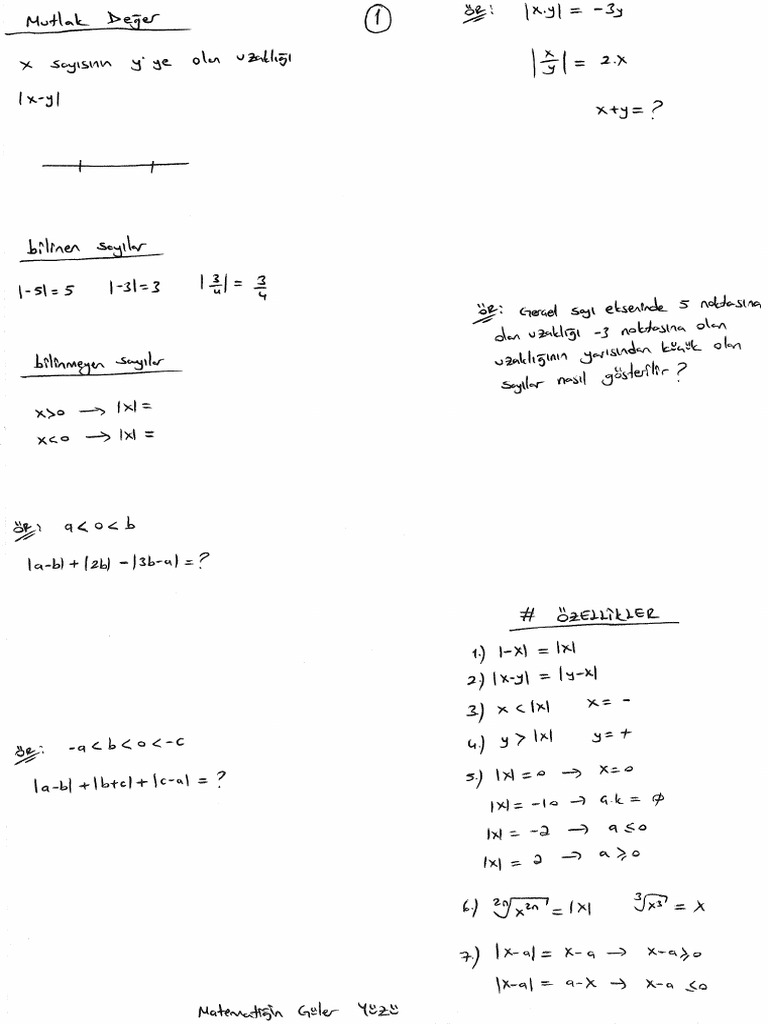 Mutlak Değer
1
x sayısının y'ye olan uzaklığı
|x-y|
bilinen sayılar
|-5|=5 |-3|=3 |3/4| = 3/4
bilinmeyen sayılar
x>0 → |x| =
x<0 → |x| =
ÖR: a<0<b
|a-b|+|2b|-|3b-a|=?
ÖR: -a<b<0<-c
|a-b|+|b+c|+|c-a|=?
ÖR: |x.y| = -3y
|x/y| = 2.x
x+y=?
ÖR: Gerçel sayı ekseninde 5 noktasına
olan uzaklığı -3 noktasına olan
uzaklığının yarısından küçük olan
sayılar nasıl gösterilir?
# ÖZELLİKLER
1.) |-x| = |x|
2.) |x-y| = |y-x|
3.) x<|x| x= -
4.) y>|x| y= +
5.) |x|=0 → x=0
|x|=-10 → Ç.k = ∅
|x| = -2 → a≤0
|x| = 2 → a≥0
6.) ²ⁿ√x²ⁿ = |x| ³√x³ = x
7.) |x-a| = x-a → x-a≥0
|x-a| = a-x → x-a ≤0
Matematiğin Güler Yüzü